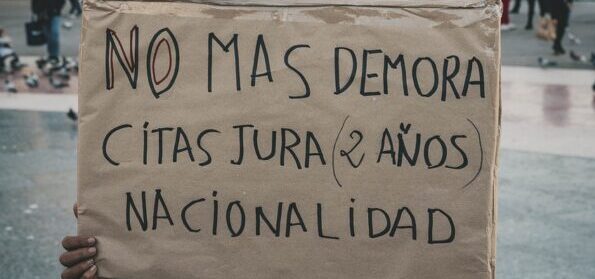 NO MAS DEMORA
CITAS JURA (2 AÑOS)
NACIONALIDAD